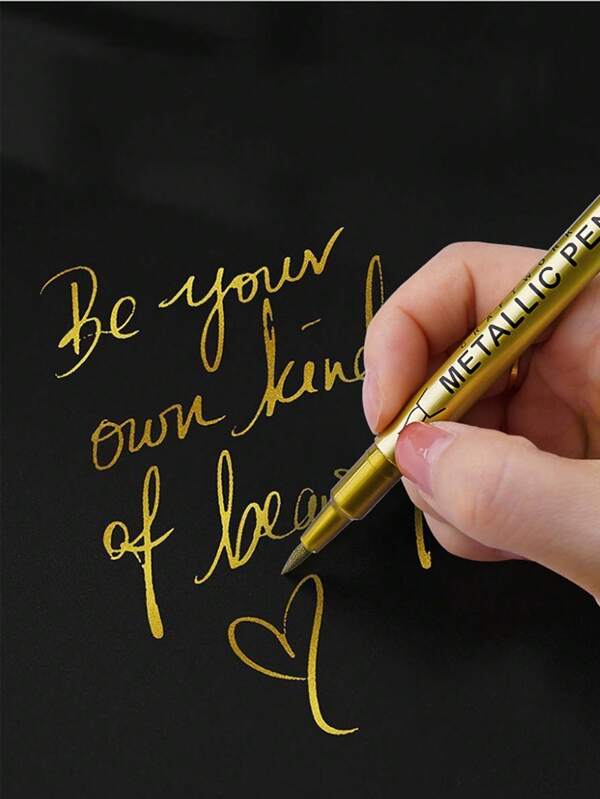 Be your
own kind
of beauty
CRAFTWORK
METALLIC PEN